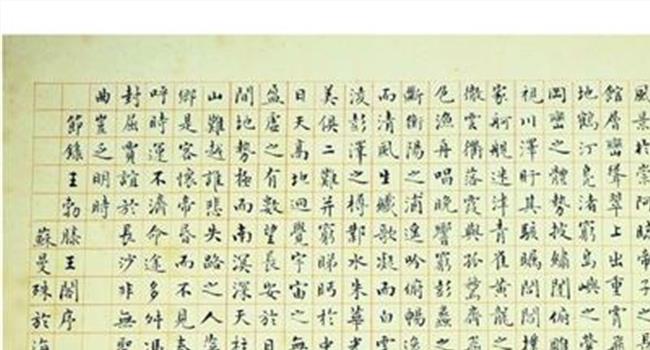 風景於崇阿臨帝子之
館層巒聳翠上出重霄
地鶴汀鳧渚窮島嶼之縈
岡巒之體勢披繡闥俯
視川澤盱其駭矚閭閻撲
家舸艦迷津青雀黃龍之
徹雲衢落霞與孤鶩齊
色漁舟唱晚響窮彭蠡之
斷衡陽之浦遙吟俯暢逸
而清風生纖歌凝而白雲
凌彭澤之樽鄴水朱華光
美俱二難并窮睇眄於中
日天高地迥覺宇宙之無
盈虛之有數望長安於日
間地勢極而南溟深天柱
山難越誰悲失路之人萍
鄉是客懷帝昏而不見奉
呼時運不濟命途多舛馮
封屈賈誼於長沙非無聖
曲豈乏明時
節錄王勃滕王閣序
蘇曼殊於海